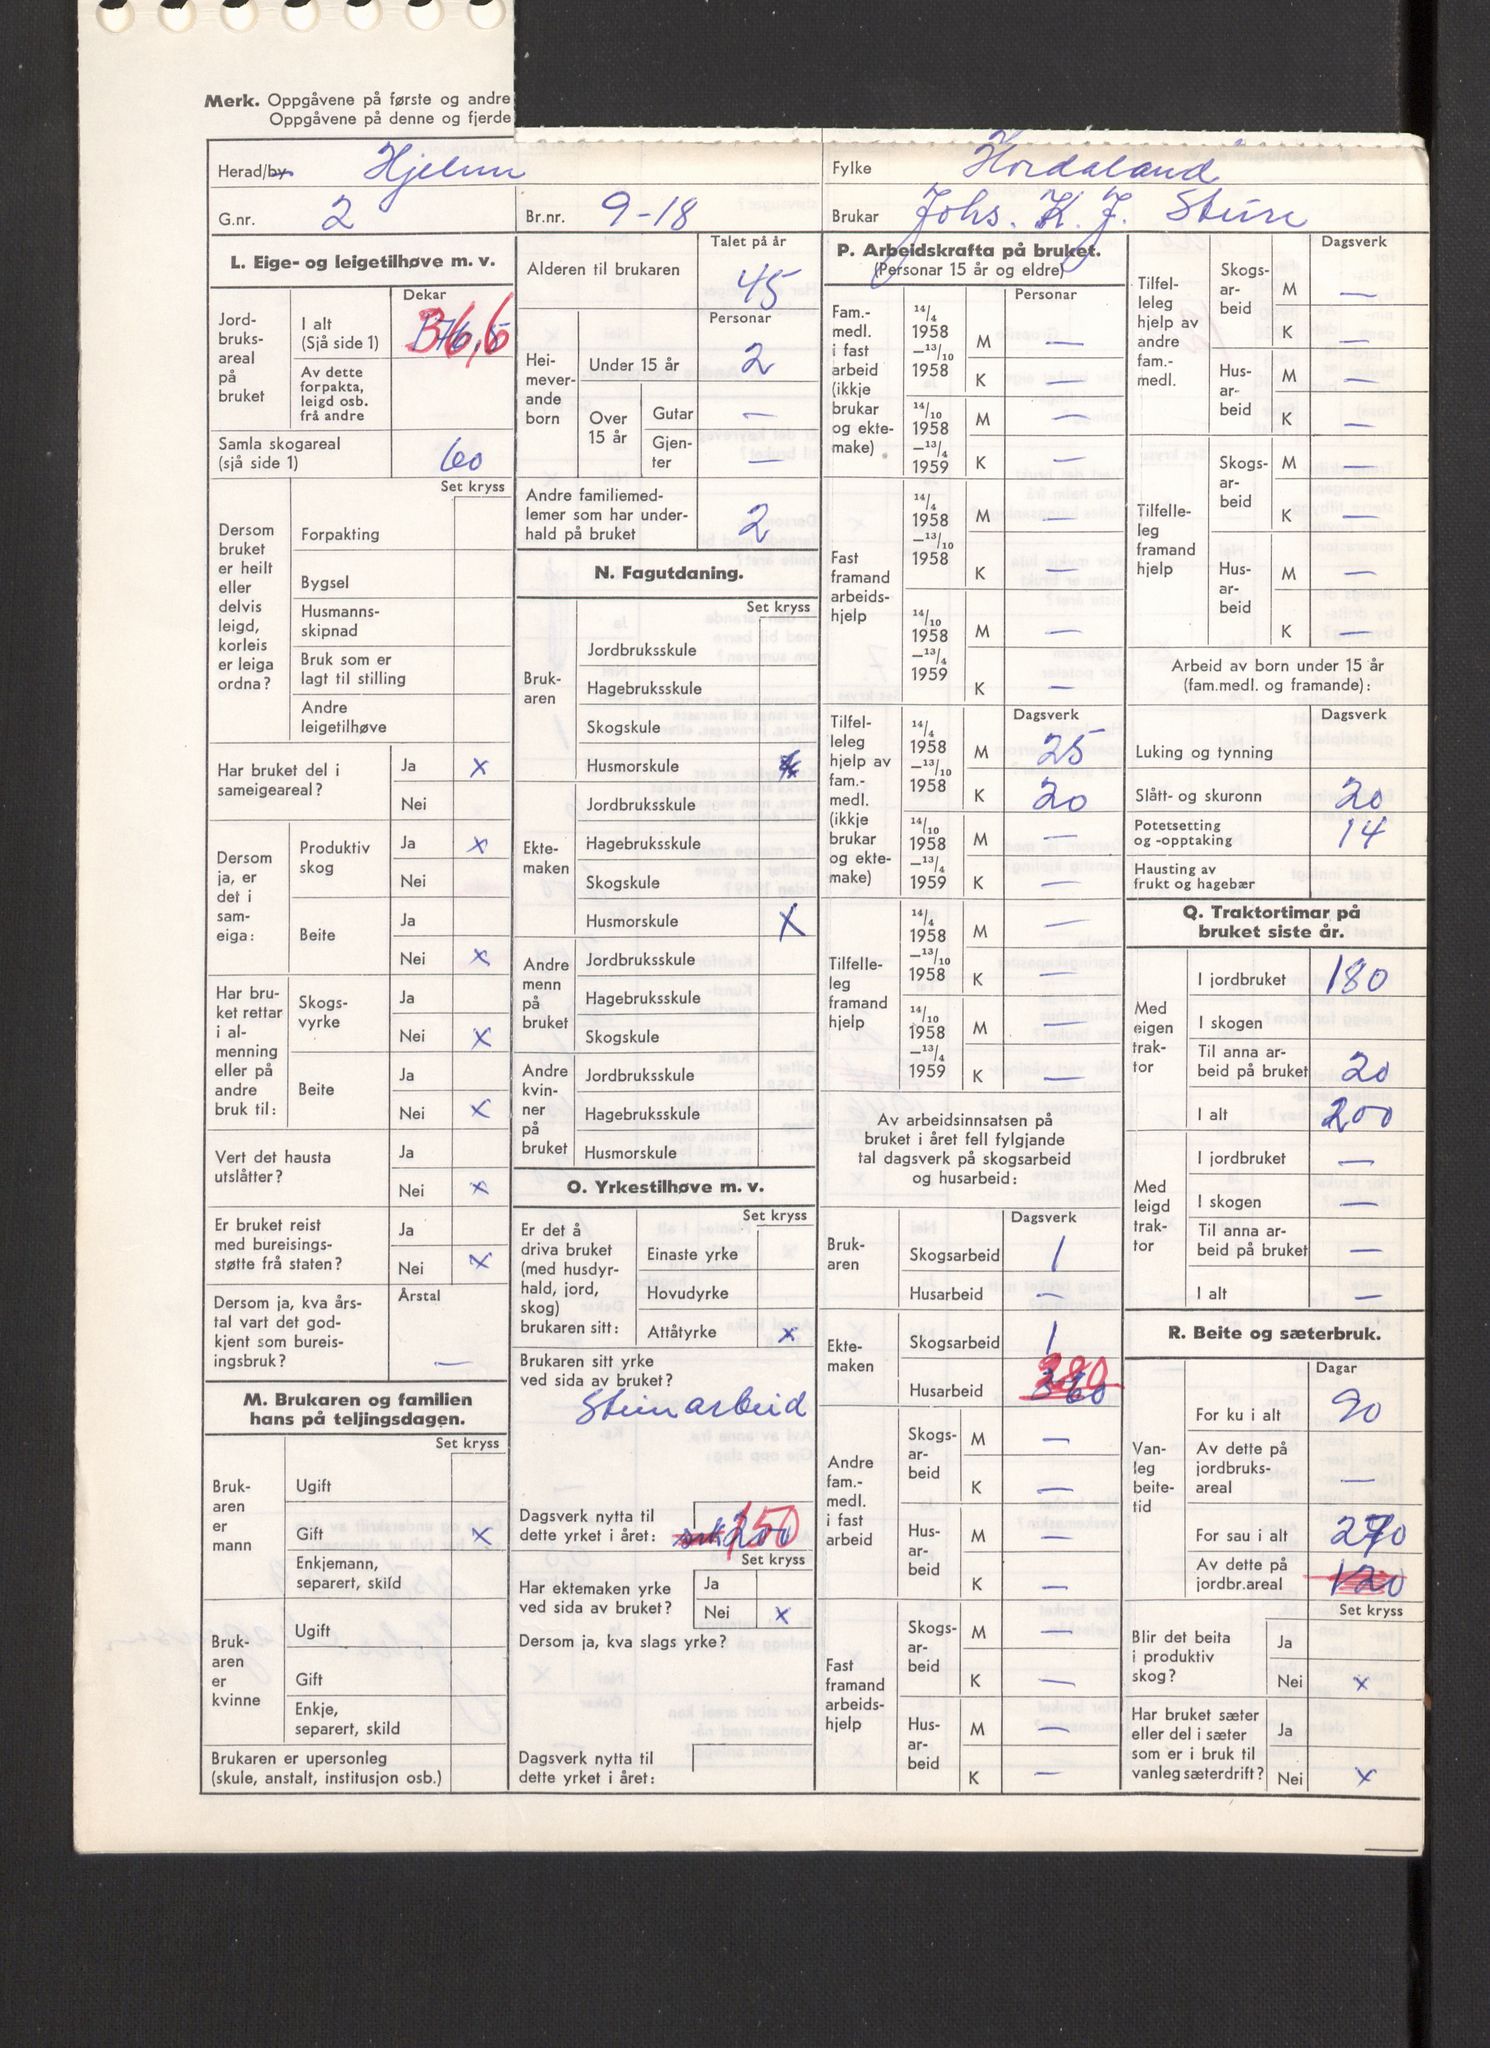 Merk. Oppgåvene på første og andre
Oppgåvene på denne og fjerde
Herad/by Hjelme
Fylke Hordaland
G.nr. 2
Br.nr. 9-18
Brukar Johs. K. J. Sture
L. Eige- og leigetilhøve m. v.
Dekar
Jord-
bruks-
areal
på
bruket
I alt
(Sjå side 1)
36,6
Av dette
forpakta,
leigd osb.
frå andre
Samla skogareal
(sjå side 1)
60
Set kryss
Dersom
bruket
er heilt
eller
delvis
leigd,
korleis
er leiga
ordna?
Forpakting
Bygsel
Husmanns-
skipnad
Bruk som er
lagt til stilling
Andre
leigetilhøve
Har bruket del i
sameigeareal?
Ja x
Nei
Dersom
ja, er
det i
sam-
eiga:
Produktiv
skog
Ja x
Nei
Beite
Ja
Nei x
Har bru-
ket rettar
i al-
menning
eller på
andre
bruk til:
Skogs-
vyrke
Ja
Nei x
Beite
Ja
Nei x
Vert det hausta
utslåtter?
Ja
Nei x
Er bruket reist
med bureisings-
støtte frå staten?
Ja
Nei x
Dersom ja, kva års-
tal vart det god-
kjent som bureis-
ingsbruk?
Årstal
—
M. Brukaren og familien
hans på teljingsdagen.
Set kryss
Bruk-
aren
er
mann
Ugift
Gift x
Enkjemann,
separert, skild
Bruk-
aren
er
kvinne
Ugift
Gift
Enkje,
separert, skild
Brukaren er upersonleg
(skule, anstalt, institusjon osb.)
Talet på år
Alderen til brukaren 45
Personar
Hei-
mever-
ande
born
Under 15 år 2
Over
15 år
Gutar —
Gjen-
ter —
Andre familiemed-
lemer som har under-
hald på bruket
2
N. Fagutdaning.
Set kryss
Bruk-
aren
Jordbruksskule
Hagebruksskule
Skogskule
Husmorskule
Ekte-
maken
Jordbruksskule
Hagebruksskule
Skogskule
Husmorskule x
Andre
menn
på
bruket
Jordbruksskule
Hagebruksskule
Skogskule
Andre
kvin-
ner
på
bruket
Jordbruksskule
Hagebruksskule
Husmorskule
O. Yrkestilhøve m. v.
Set kryss
Er det å
driva bruket
(med husdyr-
hald, jord,
skog)
brukaren sitt:
Einaste yrke
Hovudyrke
Attåtyrke x
Brukaren sitt yrke
ved sida av bruket?
Steinarbeid
Dagsverk nytta til
dette yrket i året: 200 150
Set kryss
Har ektemaken yrke
ved sida av bruket?
Ja
Nei x
Dersom ja, kva slags yrke?
Dagsverk nytta til
dette yrket i året:
P. Arbeidskrafta på bruket.
(Personar 15 år og eldre)
Personar
Fam.-
medl.
i fast
arbeid
(ikkje
brukar
og ekte-
make)
14/4
1958
—13/10
1958
M —
K —
14/10
1958
—13/4
1959
M —
K —
Fast
framand
arbeids-
hjelp
14/4
1958
—13/10
1958
M —
K —
14/10
1958
—13/4
1959
M —
K —
Dagsverk
Tilfel-
leleg
hjelp av
fam.-
medl.
(ikkje
brukar
og ekte-
make)
14/4
1958
—13/10
1958
M 25
K 20
14/10
1958
—13/4
1959
M —
K —
Tilfelle-
leg
framand
hjelp
14/4
1958
—13/10
1958
M —
K —
14/10
1958
—13/4
1959
M —
K —
Av arbeidsinnsatsen på
bruket i året fell fylgjande
tal dagsverk på skogsarbeid
og husarbeid:
Dagsverk
Bruk-
aren
Skogsarbeid 1
Husarbeid —
Ekte-
maken
Skogsarbeid 1
Husarbeid 360
Andre
fam.-
medl.
i fast
arbeid
Skogs-
ar-
beid
M —
K —
Hus-
ar-
beid
M —
K —
Fast
framand
arbeids-
hjelp
Skogs-
ar-
beid
M —
K —
Hus-
ar-
beid
M —
K —
Dagsverk
Tilfel-
leleg
hjelp av
andre
fam.-
medl.
Skogs-
ar-
beid
M —
K —
Hus-
ar-
beid
M —
K —
Tilfelle-
leg
framand
hjelp
Skogs-
ar-
beid
M —
K —
Hus-
ar-
beid
M —
K —
Arbeid av born under 15 år
(fam.medl. og framande):
Dagsverk
Luking og tynning
Slått- og skuronn 20
Potetsetting
og -opptaking 14
Hausting av
frukt og hagebær
Q. Traktortimar på
bruket siste år.
Med
eigen
trak-
tor
I jordbruket 180
I skogen
Til anna ar-
beid på bruket 20
I alt 200
Med
leigd
trak-
tor
I jordbruket —
I skogen —
Til anna ar-
beid på bruket —
I alt —
R. Beite og sæterbruk.
Dagar
Van-
leg
beite-
tid
For ku i alt 90
Av dette på
jordbruks-
areal —
For sau i alt 270
Av dette på
jordbr.areal 120
Set kryss
Blir det beita
i produktiv
skog?
Ja
Nei x
Har bruket sæter
eller del i sæter
som er i bruk til
vanleg sæterdrift?
Ja
Nei x